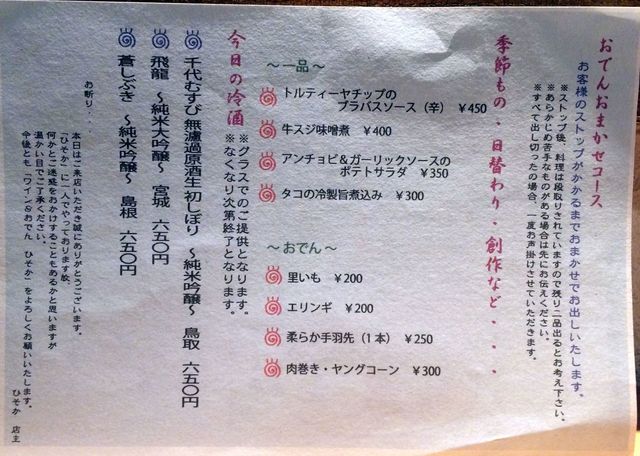 おでんおまかせコース
お客様のストップがかかるまでおまかせでお出しいたします。
※ストップ後、料理は段取りされていますので残り二品出るとお考え下さい。
※あらかじめ苦手なものがある場合は先にお伝えください。
※すべて出し切ったの場合、一度お声掛けさせていただきます。
季節もの・日替わり・創作など・・・
～一品～
トルティーヤチップの
ブラバスソース（辛） ￥450
牛スジ味噌煮 ￥400
アンチョビ＆ガーリックソースの
ポテトサラダ ￥350
タコの冷製旨煮込み ￥300
～おでん～
里いも ￥200
エリンギ ￥200
柔らか手羽先（1本） ￥250
肉巻き・ヤングコーン ￥300
今日の冷酒
※グラスでのご提供となります。
※なくなり次第終了となります。
千代むすび 無濾過原酒生 初しぼり ～純米吟醸～ 鳥取 六五〇円
飛龍 ～純米大吟醸～ 宮城 六五〇円
蒼しぶき ～純米吟醸～ 島根 六五〇円
お断り・・・
本日はご来店いただき誠にありがとうございます。
「ひそか」に一人でやっております故、
何かとご迷惑をおかけすることもあるかと思いますが
温かい目でご了承ください。
今後とも「ワイン＆おでん ひそか」をよろしくお願いいたします。
ひそか 店主